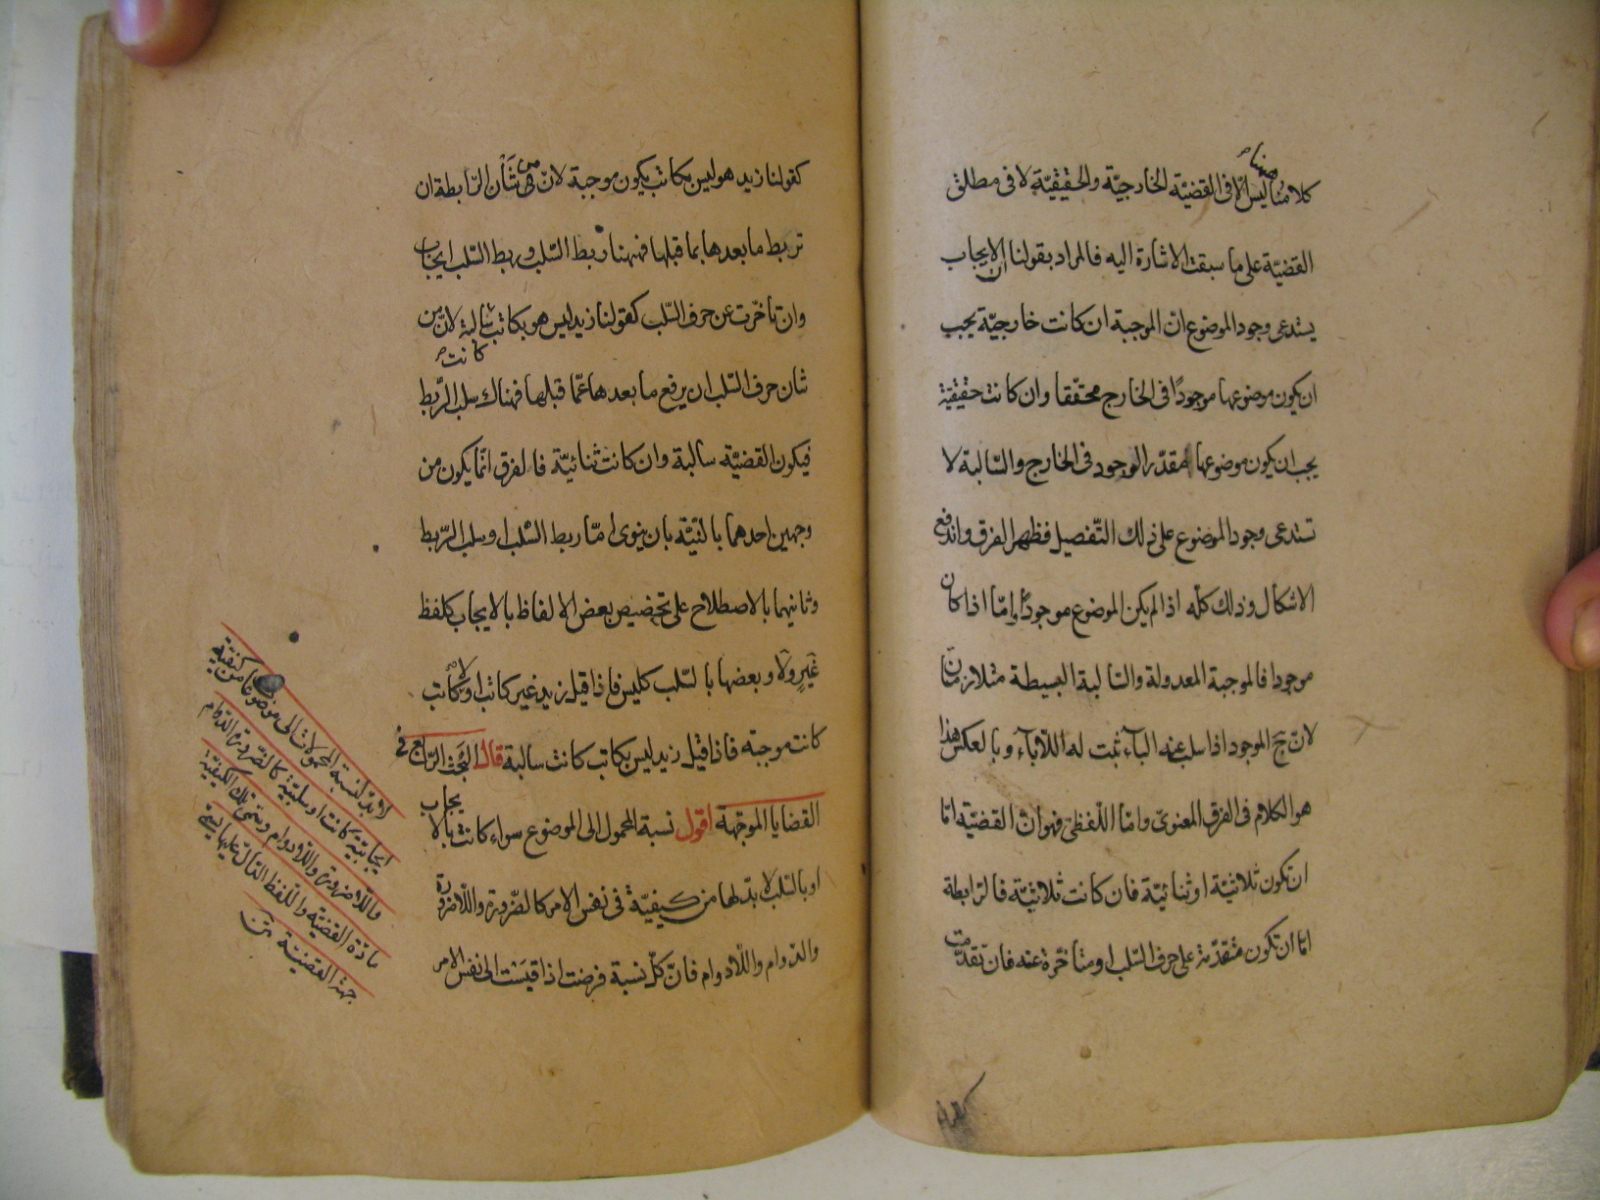 كلامنا ليس الا فى القضيّة الخارجيّة والحقيقيّة لا فى مطلق
القضيّة على ما سبقت الاشارة اليه فالمراد بقولنا ان الايجاب
يستدعى وجود الموضوع ان الموجبة ان كانت خارجيّة يجب
ان يكون موضوعها موجودًا فى الخارج محققا وان كانت حقيقية
يجب ان يكون موضوعها مقدّر الوجود فى الخارج والسّالبة لا
تستدعى وجود الموضوع على ذلك التّفصيل فظهر الفرق واندفع
الاشكال وذلك كلّه اذا لم يكن الموضوع موجودًا وامّا اذا كان
موجودا فالموجبة المعدولة والسّالبة البسيطة متلازمتان
لانّ ج الموجود اذا سلب عنه الباء ثبت له اللّاباء وبالعكس هذا
هو الكلام فى الفرق المعنوى وامّا اللّفظى فهو انّ القضيّة امّا
ان تكون ثلاثية او ثنائيّة فان كانت ثلاثيّة فالرّابطة
امّا ان تكون متقدّمة على حرف السّلب او متأخّرة عنه فان تقدمت
كقولنا
كقولنا زيد هو ليس بكاتب يكون موجبة لانّ من شأن الرّابطة ان
تربط ما بعدها بما قبلها فههنا ربط السّلب وربط السّلب ايجاب
وان تأخّرت عن حرف السّلب كقولنا زيد ليس هو بكاتب كانت سالبة لانّ من
شأن حرف السّلب ان يرفع ما بعدها عمّا قبلها فهناك سلب الرّبط
فيكون القضيّة سالبة وان كانت ثنائيّة فالفرق انّما يكون من
وجهين احدهما بالنّيّة بان ينوى امّا ربط السّلب او سلب الرّبط
وثانيهما بالاصطلاح على تخصيص بعض الالفاظ بالايجاب كلفظ
غير ولا وبعضها بالسّلب كليس فاذا قيل زيد غير كاتب او لا كاتب
كانت موجبة فاذا قيل زيد ليس بكاتب كانت سالبة قال البحث الرّابع فى
القضايا الموجّهة اقول نسبة المحمول الى الموضوع سواء كانت بالايجاب
او بالسّلب لا بدّ لها من كيفيّة فى نفس الامر كالضّرورة واللّاضرورة
والدّوام واللّادوام فانّ كلّ نسبة فرضت اذا قيست الى نفس الامر
لا بدّ لنسبة المحمولات الى موضوعاتها من كيفية
ايجابيّة كانت او سلبيّة كالضّرورة والدّوام
واللّاضرورة واللّادوام وتسمّى تلك الكيفيّة
مادّة القضيّة واللّفظ الدّال عليها يسمّى
جهة القضيّة متن